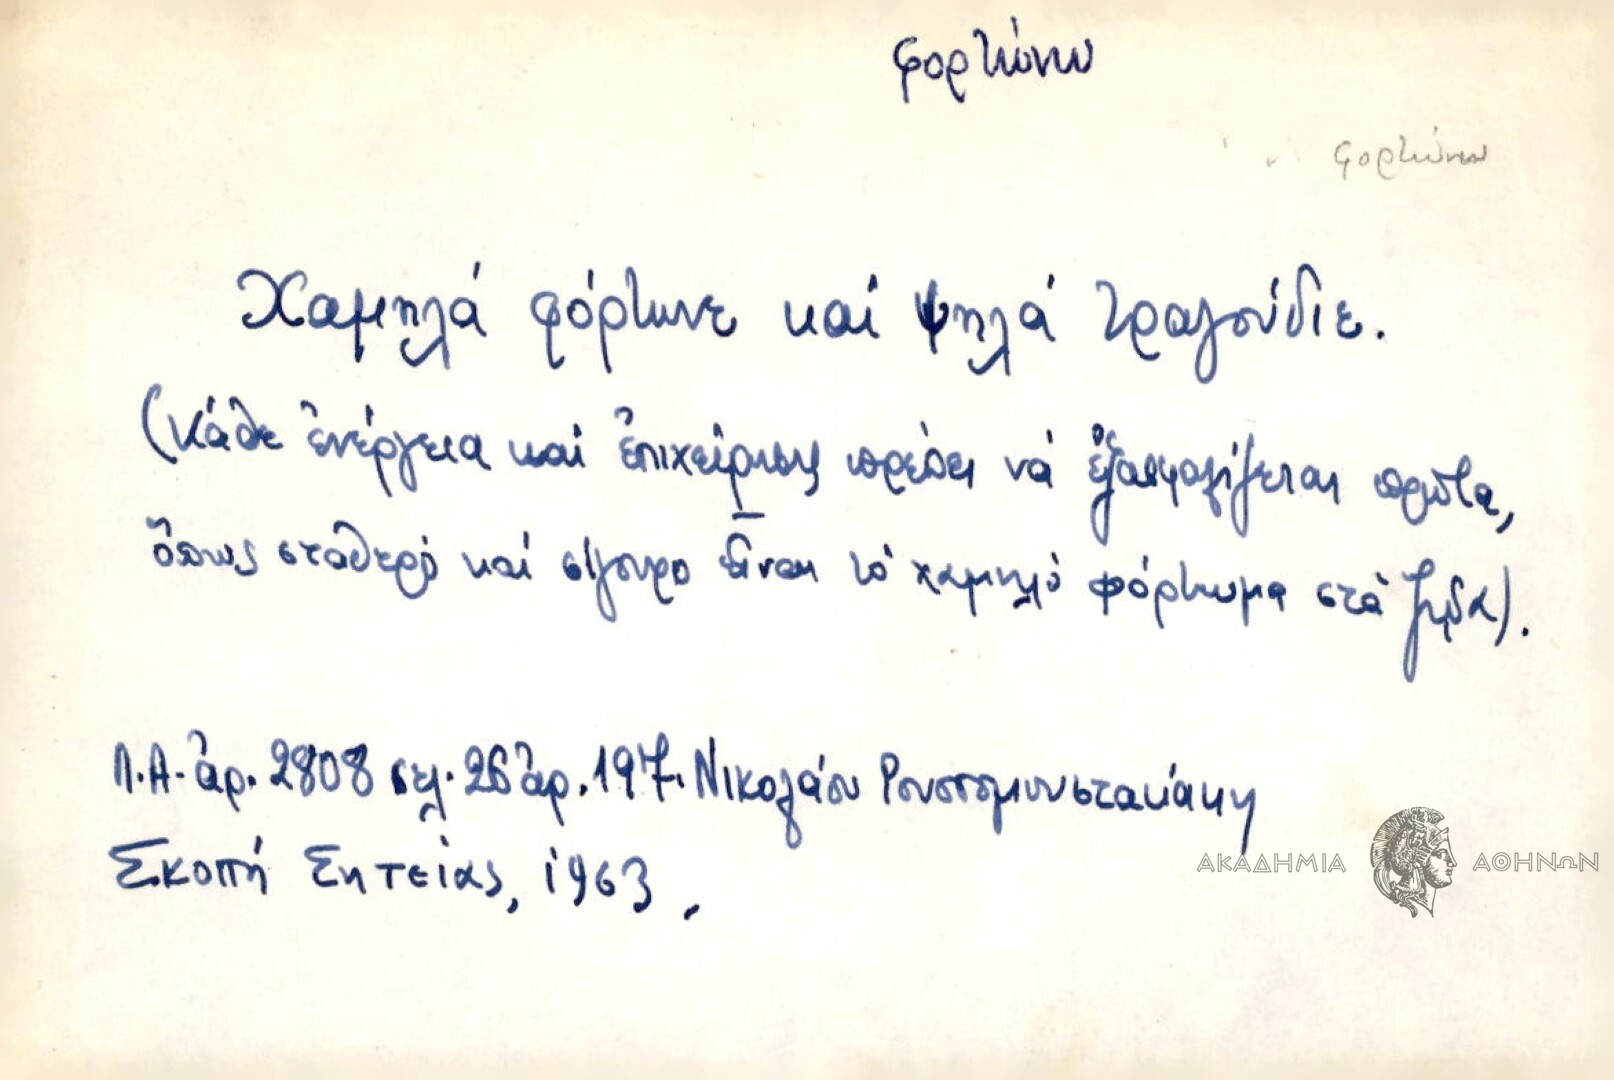 φορτώνω
φορτώνω
Χαμηλά φόρτωνε καί ψηλά τραγούδιε.
(Κάθε ἐνέργεια καί ἐπιχείρησις πρέπει νά ἐξασφαλίζεται πρῶτα,
ὅπως σταθερό καί σίγουρο εἶναι τό χαμηλό φόρτωμα στά ζῶα).
Λ.Α. ἀρ. 2808 σελ. 26 ἀρ. 197. Νικολάου
Σκοπή Σητείας, 1963.
ΑΚΑΔΗΜΙΑ ΑΘΗΝΩΝ